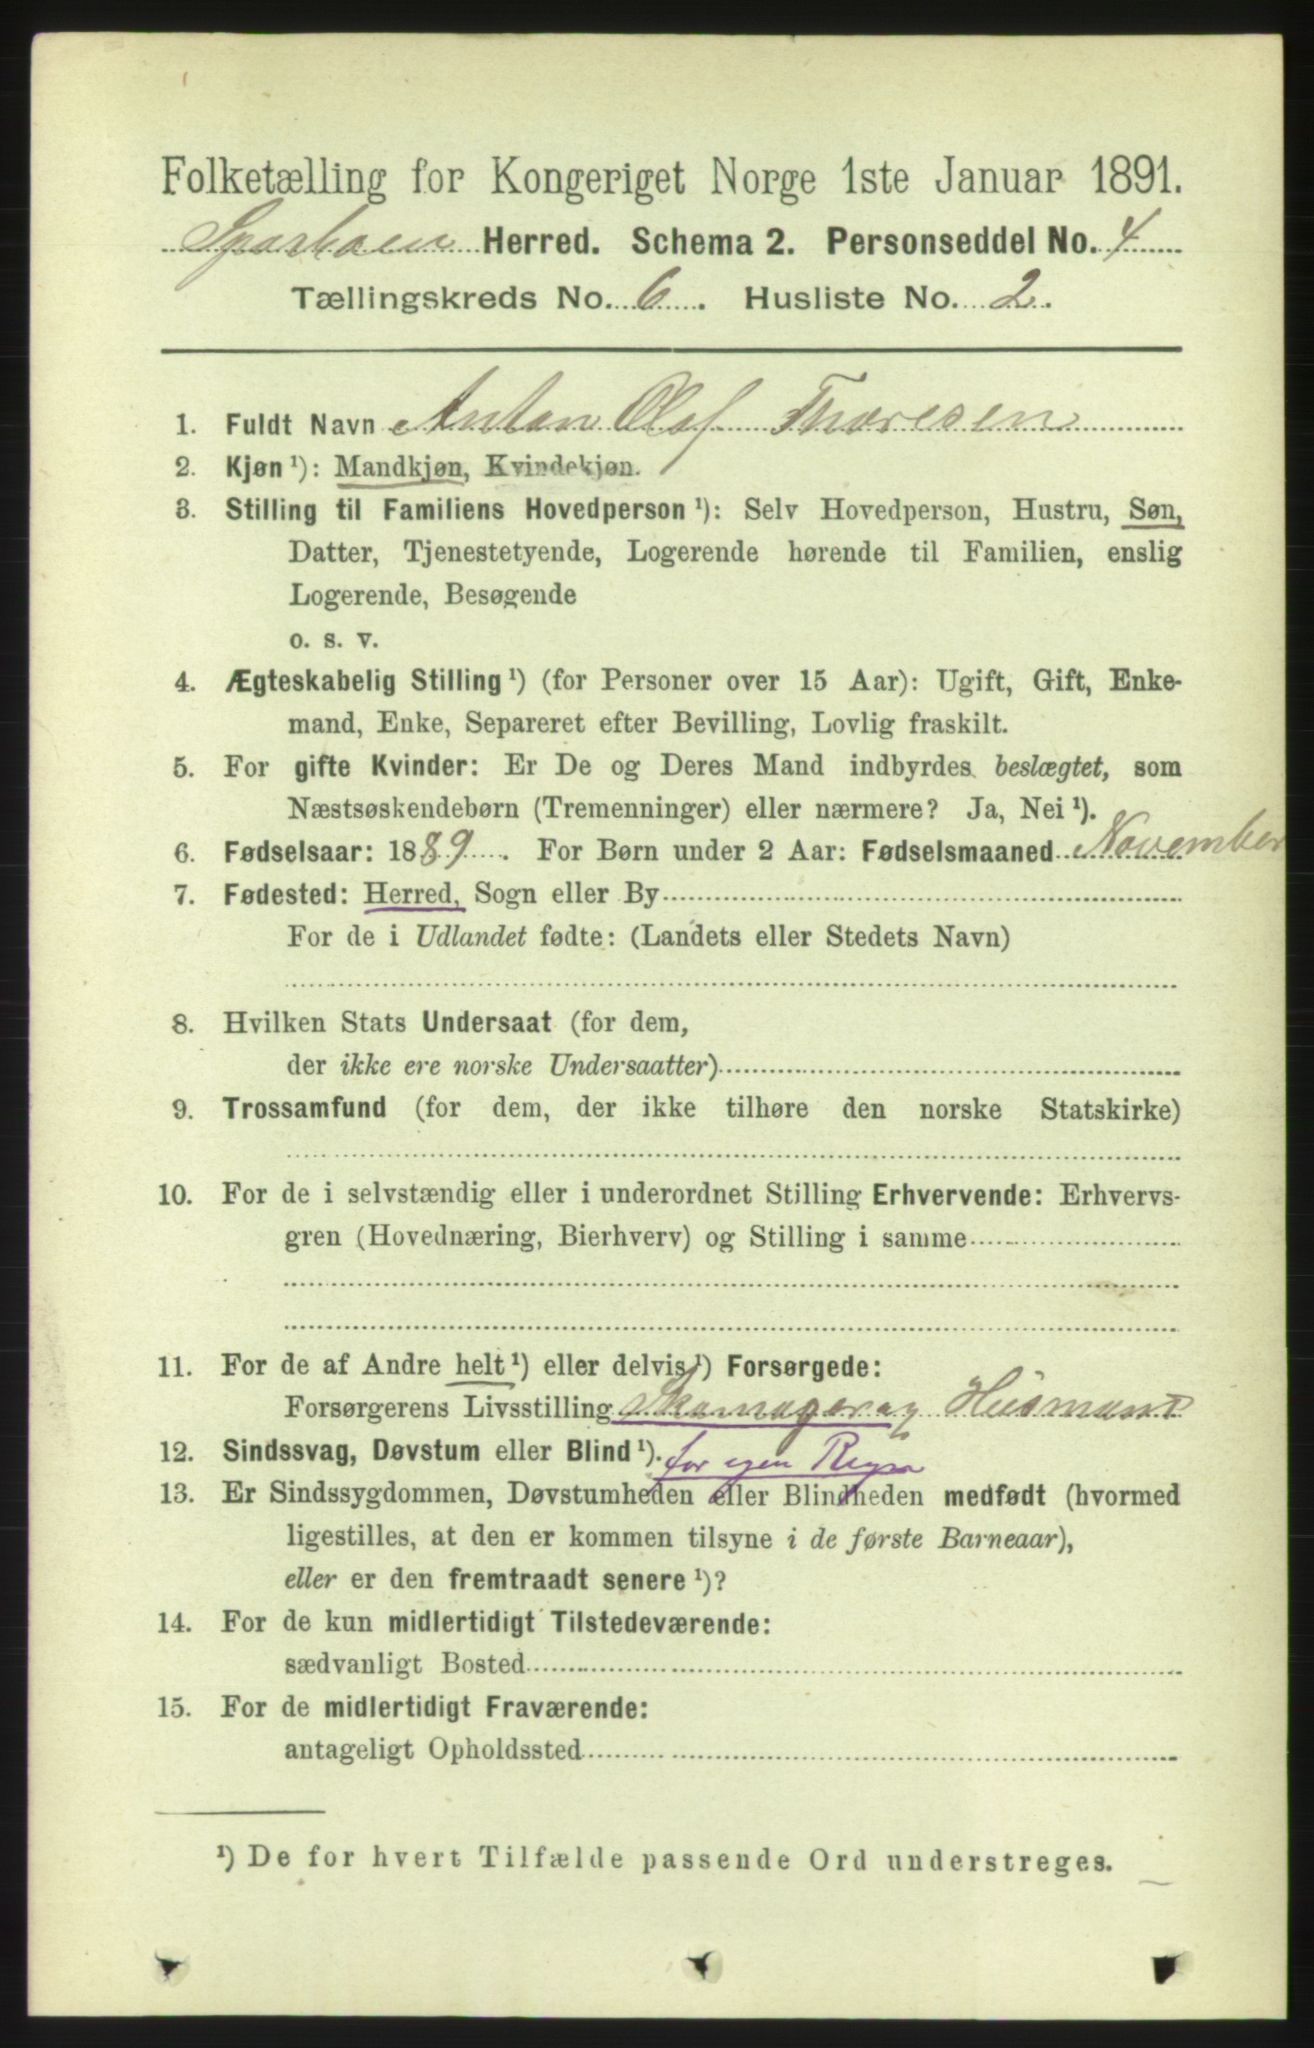 Folketælling for Kongeriget Norge 1ste Januar 1891.
Sparbuen Herred. Schema 2. Personseddel No. 4
Tællingskreds No. 6. Husliste No. 2.
1. Fuldt Navn Anton Olaf Thoresen
2. Kjøn ¹): Mandkjøn, Kvindekjøn.
3. Stilling til Familiens Hovedperson ¹): Selv Hovedperson, Hustru, Søn,
Datter, Tjenestetyende, Logerende hørende til Familien, enslig
Logerende, Besøgende
o. s. v.
4. Ægteskabelig Stilling ¹) (for Personer over 15 Aar): Ugift, Gift, Enke-
mand, Enke, Separeret efter Bevilling, Lovlig fraskilt.
5. For gifte Kvinder: Er De og Deres Mand indbyrdes beslægtet, som
Næstsøskendebørn (Tremenninger) eller nærmere? Ja, Nei ¹).
6. Fødselsaar: 1889. For Børn under 2 Aar: Fødselsmaaned November
7. Fødested: Herred, Sogn eller By
For de i Udlandet fødte: (Landets eller Stedets Navn)
8. Hvilken Stats Undersaat (for dem,
der ikke ere norske Undersaatter)
9. Trossamfund (for dem, der ikke tilhøre den norske Statskirke)
10. For de i selvstændig eller i underordnet Stilling Erhvervende: Erhvervs-
gren (Hovednæring, Bierhverv) og Stilling i samme
11. For de af Andre helt ¹) eller delvis ¹) Forsørgede:
Forsørgerens Livsstilling Skomager og Husmand
12. Sindssvag, Døvstum eller Blind ¹). for egen Regn
13. Er Sindssygdommen, Døvstumheden eller Blindheden medfødt (hvormed
ligestilles, at den er kommen tilsyne i de første Barneaar),
eller er den fremtraadt senere ¹)?
14. For de kun midlertidigt Tilstedeværende:
sædvanligt Bosted
15. For de midlertidigt Fraværende:
antageligt Opholdssted
¹) De for hvert Tilfælde passende Ord understreges.